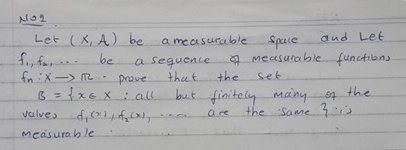 No 2
Let (X, A) be a measurable space and Let
f₁, f₂, ... be a sequence of measurable functions
fn : X → ℝ - prove that the set
B = {x ∈ X : all but finitely many of the
values f₁(x), f₂(x), ..... are the same } is
measurable